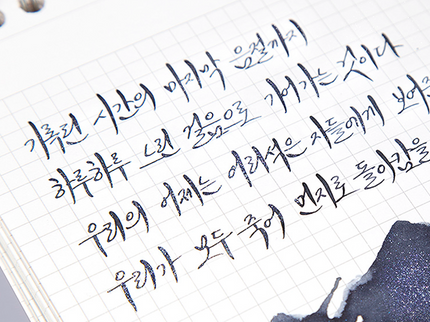 기록된 시간의 마지막 음절까지
하루하루 느린 걸음으로 기어가는 것이다
우리의 어제는 어리석은 자들에게 보여준
우리가 모두 죽어 먼지로 돌아감을